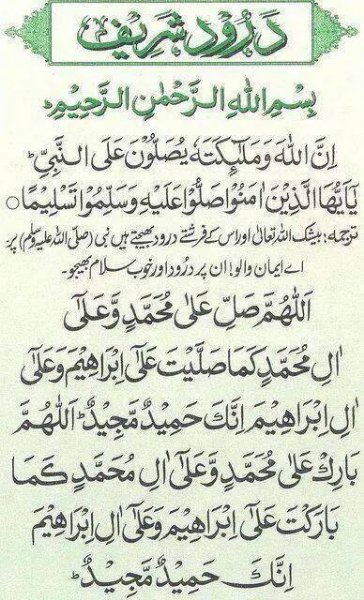 دَرُود شَرِیف
بِسْمِ اللهِ الرَّحْمٰنِ الرَّحِيْمِ
اِنَّ اللهَ وَمَلٰٓئِكَتَهٗ يُصَلُّوْنَ عَلَى النَّبِيِّ ؕ
يٰٓاَيُّهَا الَّذِيْنَ اٰمَنُوْا صَلُّوْا عَلَيْهِ وَسَلِّمُوْا تَسْلِيْمًا ○
ترجمہ: بیشک اللہ تعالیٰ اور اس کے فرشتے درود بھیجتے ہیں نبی (صلی اللہ علیہ وسلم) پر
اے ایمان والو! ان پر درُود اور خوب سلام بھیجو۔
اَللّٰهُمَّ صَلِّ عَلٰى مُحَمَّدٍ وَّعَلٰٓى
اٰلِ مُحَمَّدٍ كَمَا صَلَّيْتَ عَلٰٓى اِبْرَاهِيْمَ وَعَلٰٓى
اٰلِ اِبْرَاهِيْمَ اِنَّكَ حَمِيْدٌ مَّجِيْدٌ ؕ اَللّٰهُمَّ
بَارِكْ عَلٰى مُحَمَّدٍ وَّعَلٰٓى اٰلِ مُحَمَّدٍ كَمَا
بَارَكْتَ عَلٰٓى اِبْرَاهِيْمَ وَعَلٰٓى اٰلِ اِبْرَاهِيْمَ
اِنَّكَ حَمِيْدٌ مَّجِيْدٌ ؕ